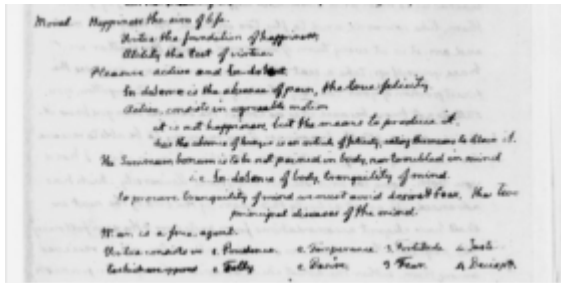 Moral. Happiness the aim of life.
Virtue the foundation of happiness,
Utility the test of virtue.
Pleasure active and In-dolent.
In-dolence is the absence of pain, the true felicity.
Active, consists in agreeable motion.
it is not happiness, but the means to produce it.
the absence of hunger is an article of felicity; eating the means to obtain it.
The summum bonum is to be not pained in body, nor troubled in mind
i.e. In-dolence of body, tranquility of mind.
to procure tranquility of mind we must avoid desire & fear, the two
principal diseases of the mind.
Man is a free agent.
Virtue consists in 1. Prudence 2. Temperance 3. Fortitude 4. Justice
to which are opposed 1. Folly 2. Desire 3. Fear 4. Deceipt.